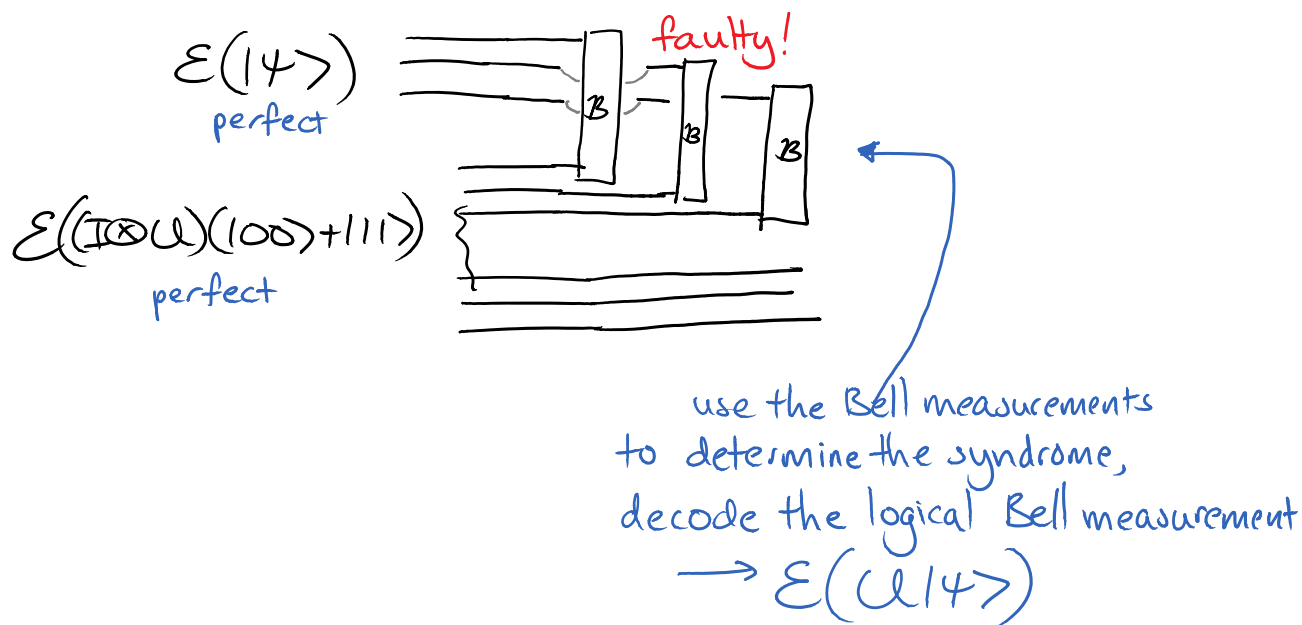 ℰ(|ψ⟩)
perfect
faulty!
B
B
B
ℰ((I⊗U)(|00⟩+|11⟩)
perfect
use the Bell measurements
to determine the syndrome,
decode the logical Bell measurement
→ ℰ(U|ψ⟩)